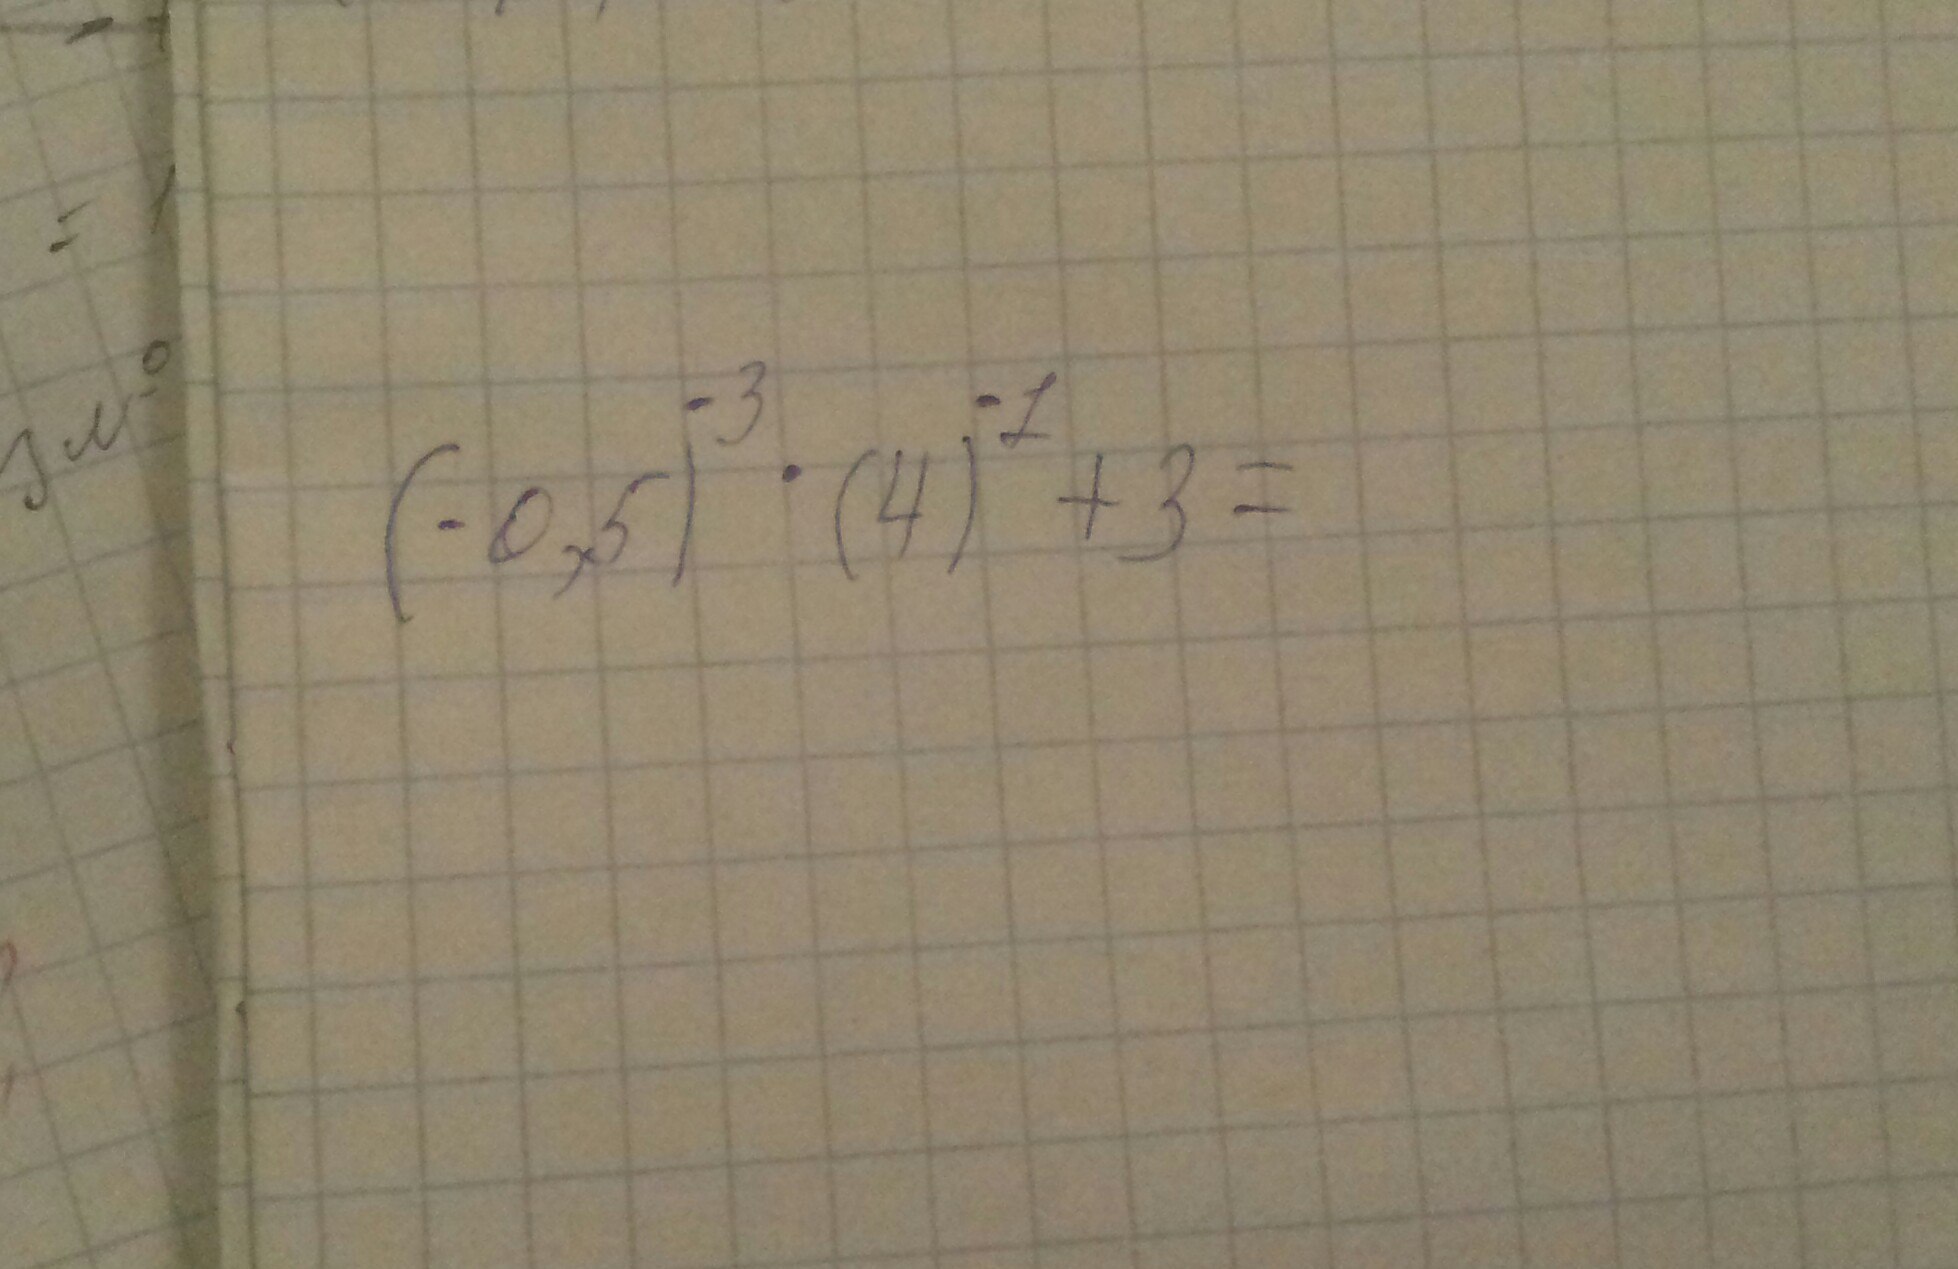 (-0,5)⁻³ · (4)⁻¹ + 3 =
=